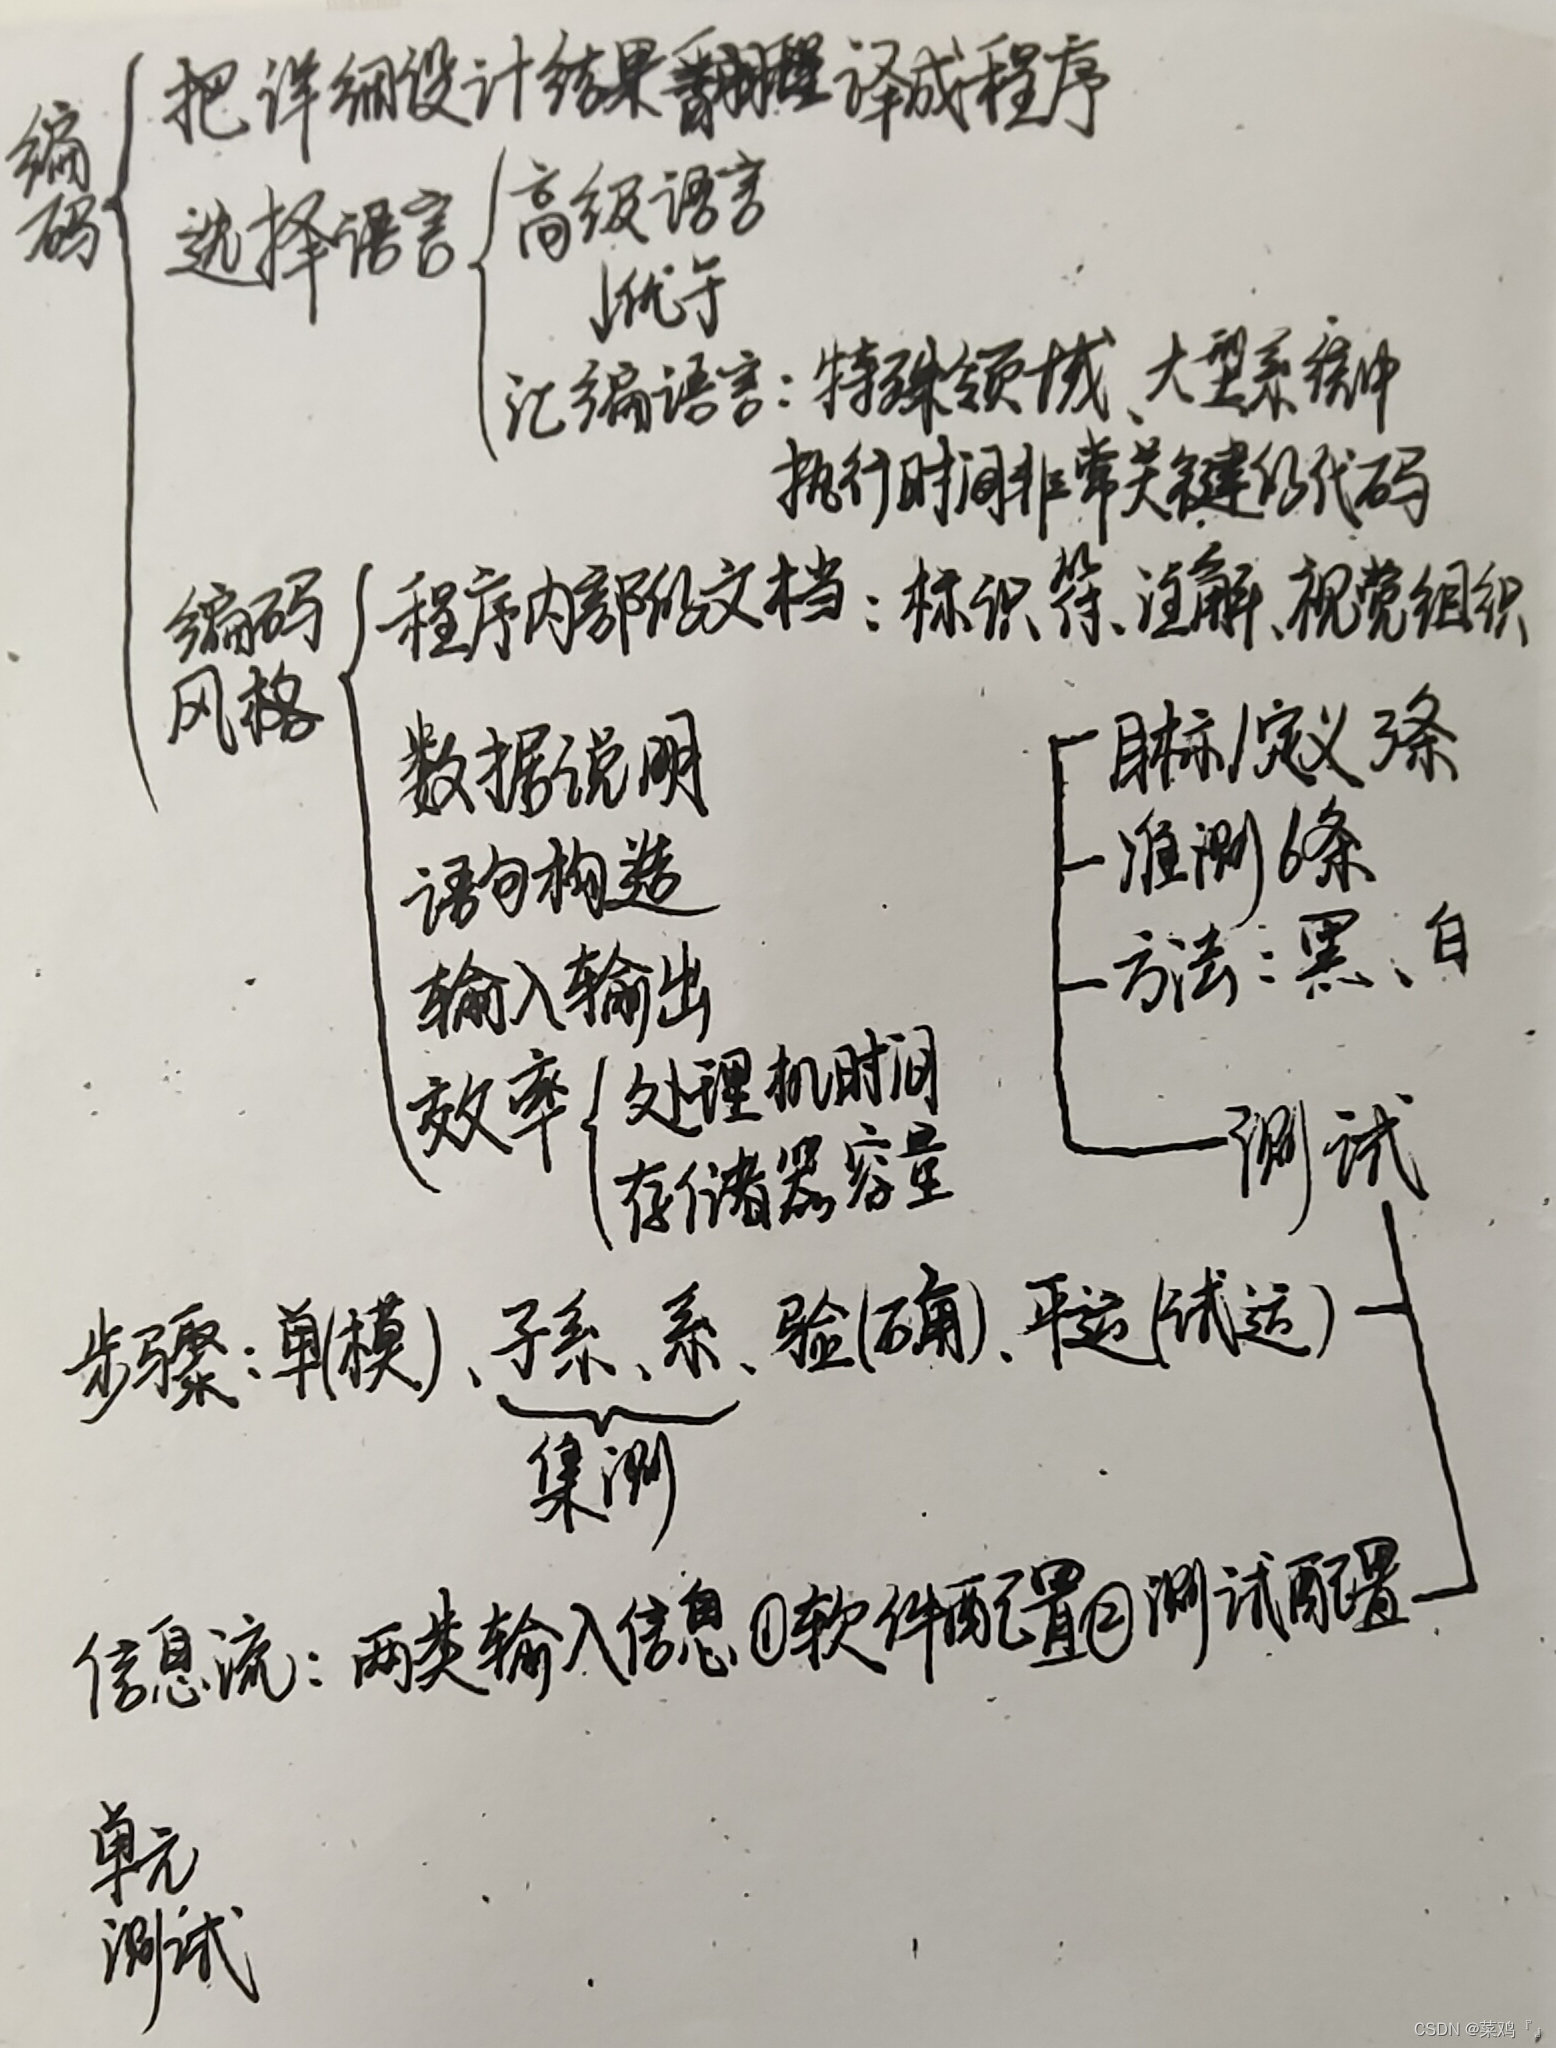 编码
把详细设计结果翻译成程序
选择语言
高级语言
↓优于
汇编语言：特殊领域、大型系统中
执行时间非常关键的代码
编码风格
程序内部的文档：标识符、注解、视觉组织
数据说明
语句构造
输入输出
效率
处理机时间
存储器容量
目标/定义 3条
准测 6条
方法：黑、白
测试
步骤：单(模)、子系、系、验(确)、平运(试运)
集测
信息流：两类输入信息①软件配置②测试配置
单元
测试
CSDN @菜鸡『』